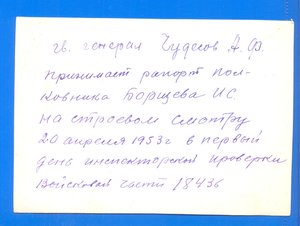 гв. генерал Чудесов А.Ф.
принимает рапорт пол-
ковника Борщева И.С.
на строевом смотру
20 апреля 1953 г в первый
день инспекторской проверки
Войсковая части 18436